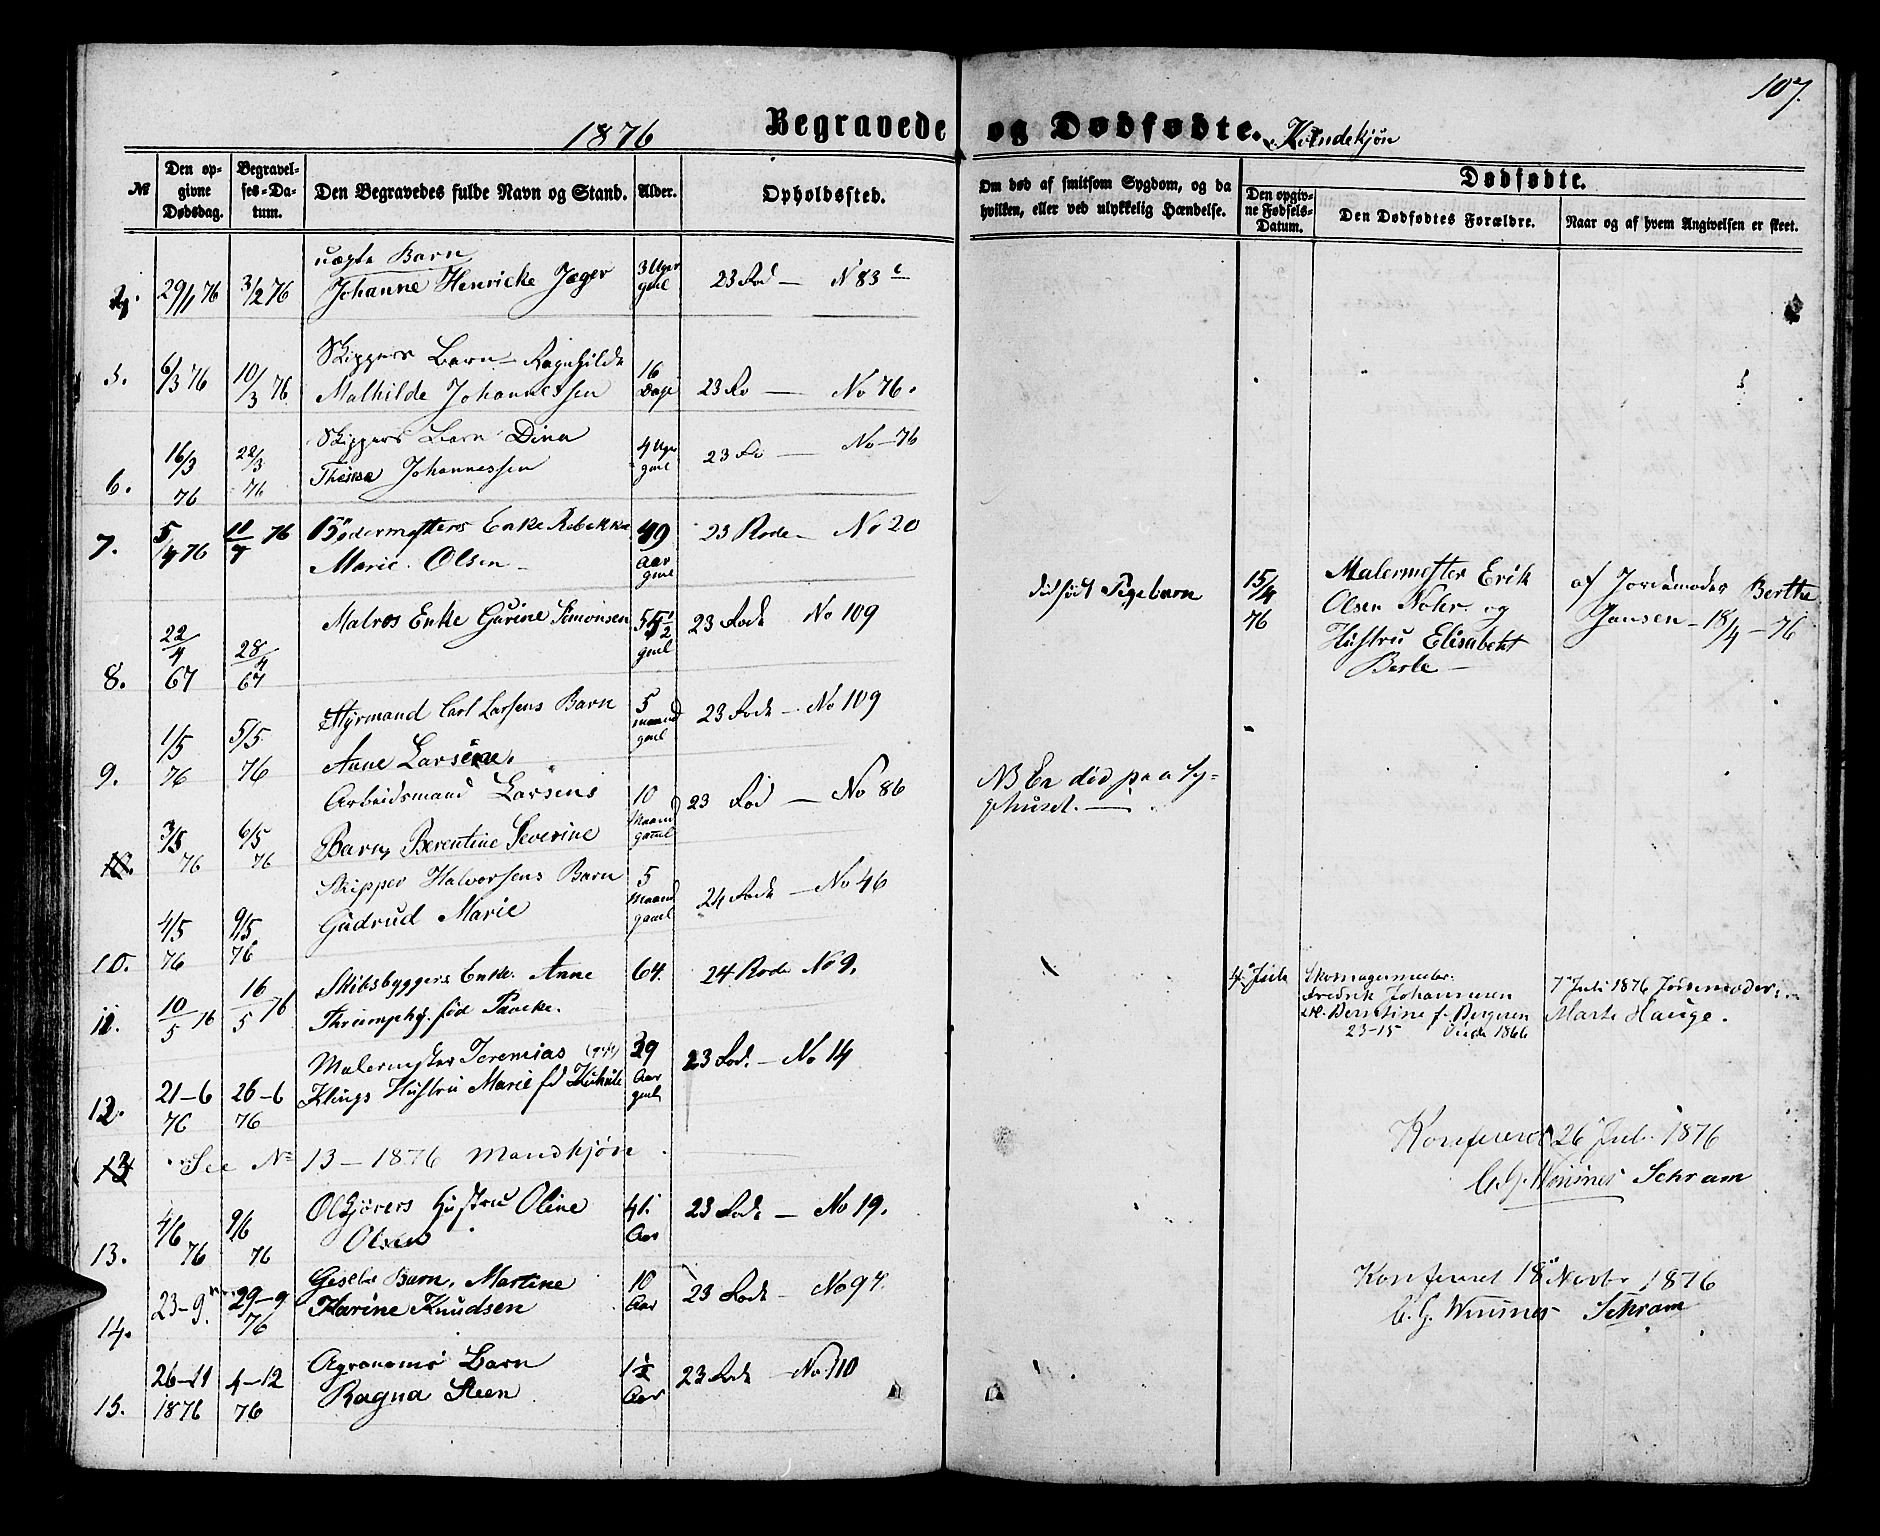 107.
1876 Begravede og Dødfødte. Kvindekjøn
№
Den opgivne Dødsdag.
Begravelses-Datum.
Den Begravedes fulde Navn og Stand.
Alder.
Opholdssted.
Om død af smitsom Sygdom, og da hvilken, eller ved ulykkelig Hændelse.
Dødfødte.
Den opgivne Fødsels-Datum.
Den Dødfødtes Forældre.
Naar og af hvem Angivelsen er skeet.
uægte Barn
29/1 76 3/2 76 Johanne Henricke Jæger 3 Uger gml 23 Rod — N 83 c
Skippers Barn Ragnhilde
5. 6/3 76 10/3 76 Mathilde Johannessen 16 Dage 23 Ro — No 76.
Skippers Barn Dina
6. 16/3 76 22/3 76 Johannessen 4 Uger gml 23 Ro — No 76
7. 5/4 76 11/4 76 Bødermesters Enke Rebekka 49 Aar gml 23 Rode — No 20
Marie Olsen
dødfødt Pigebarn 15/4 76 Malermester Erik af Jordemoder Berthe
Olsen Nohr og Jansen — 18/4 — 76
Hustru Elisabeth
Berle —
Malros Enke Gurine Simonsen gml 23 Rode No 109
8. 22/4 67 28/4 67
Styrmand Carl Larsens Barn 5 maaned gml 23 Rode — No 109
9. 1/5 76 5/5 76 Anne Larsene.
Arbeidsmand Larsens 10 Maaned gamel 23 Rod — No 86 NB En død paa Sy=
gehuset. —
10. 3/5 76 6/5 76 Barn, Berentine Severine
Skipper Halvorsens Barn 5 Maaned gamel 24 Rode — No 46
10. 4/5 76 9/5 76 Gudrud Marie
Skibsbyggers Enke Anne 64. 24 Rode No 9.
11. 10/5 76 16/5 76 Thrumphy. fød Paveke.
4de Juli Skomagermester 7de Juli 1876 Jordemoder
Fredrik Johannesen Marte Hauge.
Berntine f. Bergsen
23-15 1866
Malermester Jeremias 39 Aar gml 23 Rod. — No 14
12. 21–6 76 26–6 76 Klings Hustru Marie fd
13 See No 13 – 1876 Mandkjøn.
Konfereret 26 Juli 1876
C. G. Winsnes Schram
Hustru Oline 41. Aar 23 Rode — No 19.
13. 4/6 76 9/6 76 Olsen
Barn, Martine 10 Aar 23 Rode — No 97.
14. 23–9. 29–9 76 Karine Knudsen
Konfereret 18 Novbr 1876
C. G. Winsnes Schram
Agronoms Barn 1½ Aar 23 Rode — No 110
15. 26–11 1876 4–12 76 Ragna Steen